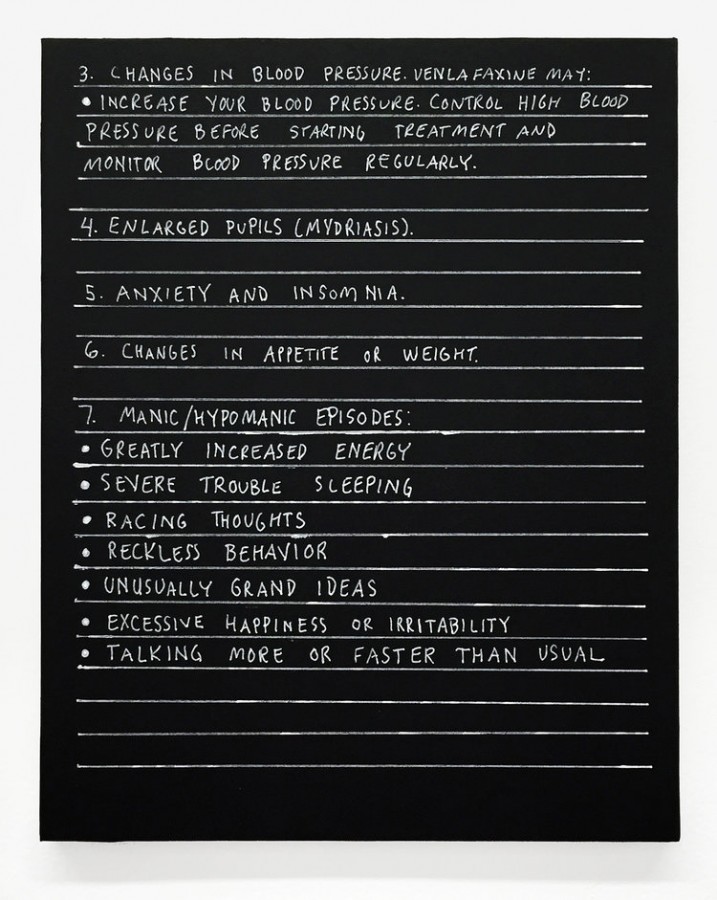 3. CHANGES IN BLOOD PRESSURE. VENLAFAXINE MAY:
• INCREASE YOUR BLOOD PRESSURE. CONTROL HIGH BLOOD
PRESSURE BEFORE STARTING TREATMENT AND
MONITOR BLOOD PRESSURE REGULARLY.
4. ENLARGED PUPILS (MYDRIASIS).
5. ANXIETY AND INSOMNIA.
6. CHANGES IN APPETITE OR WEIGHT.
7. MANIC/HYPOMANIC EPISODES:
• GREATLY INCREASED ENERGY
• SEVERE TROUBLE SLEEPING
• RACING THOUGHTS
• RECKLESS BEHAVIOR
• UNUSUALLY GRAND IDEAS
• EXCESSIVE HAPPINESS OR IRRITABILITY
• TALKING MORE OR FASTER THAN USUAL